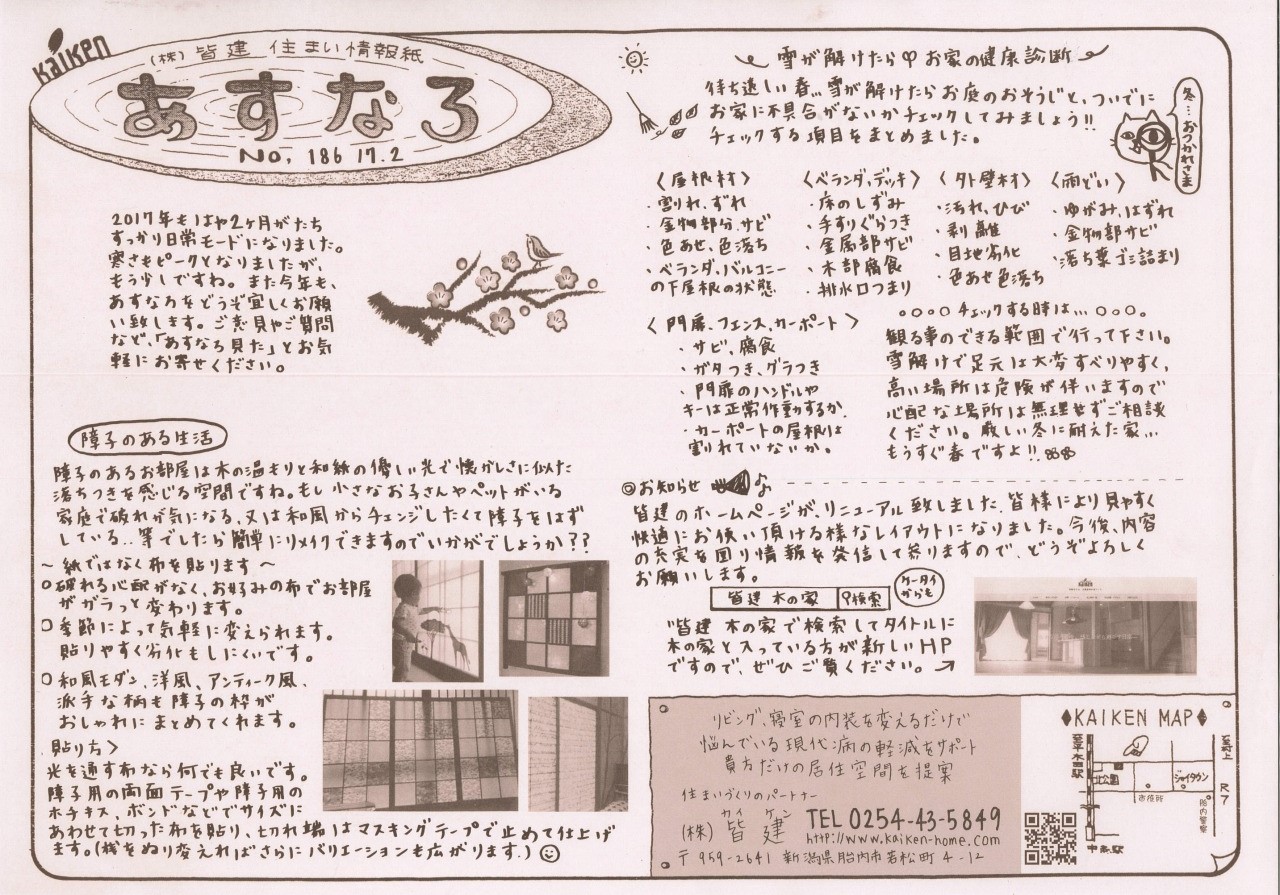 KaiKen
(株)皆建 住まい情報紙
あすなろ
No. 186 17.2
2017年もはや2ヶ月がたち
すっかり日常モードになりました。
寒さもピークとなりましたが、
もう少しですね。また今年も、
あすなろをどうぞ宜しくお願
い致します。ご意見やご質問
など、「あすなろ見た」とお気
軽にお寄せください。
障子のある生活
障子のあるお部屋は木の温もりと和紙の優しい光で懐かしさに似た
落ちつきを感じる空間ですね。もし小さなお子さんやペットがいる
家庭で破れが気になる、又は和風からチェンジしたくて障子をはず
している…等でしたら簡単にリメイクできますのでいかがでしょうか??
~ 紙ではなく布を貼ります ~
○破れる心配がなく、お好みの布でお部屋
がガラっと変わります。
○季節によって気軽に変えられます。
貼りやすく劣化もしにくいです。
○和風モダン、洋風、アンティーク風、
派手な柄も障子の枠が
おしゃれにまとめてくれます。
貼り方>
光を通す布なら何でも良いです。
障子用の両面テープや障子用の
ホチキス、ボンドなどでサイズに
あわせて切った布を貼り、切れ端はマスキングテープで止めて仕上げ
ます。(桟をぬり変えればさらにバリエーションも広がります。)
雪が解けたら お家の健康診断
待ち遠しい春…雪が解けたらお庭のおそうじと、ついでに
お家に不具合がないかチェックしてみましょう!!
チェックする項目をまとめました。
冬…おつかれさま
〈屋根材〉
・割れ、ずれ
・金物部分、サビ
・色あせ、色落ち
・ベランダ、バルコニー
の下屋根の状態
〈ベランダ、デッキ〉
・床のしずみ
・手すりぐらつき
・金属部サビ
・木部腐食
・排水口つまり
〈外壁材〉
・汚れ、ひび
・剥離
・目地劣化
・色あせ色落ち
〈雨どい〉
・ゆがみ、はずれ
・金物部サビ
・落ち葉ゴミ詰まり
〈門扉、フェンス、カーポート〉
・サビ、腐食
・ガタつき、グラつき
・門扉のハンドルや
キーは正常作動するか.
・カーポートの屋根は
割れていないか。
○○○○ チェックする時は… ○○○。
観る事のできる範囲で行って下さい。
雪解けで足元は大変すべりやすく、
高い場所は危険が伴いますので
心配な場所は無理せずご相談
ください。厳しい冬に耐えた家…
もうすぐ春ですよ!!
◎お知らせ
皆建のホームページが、リニューアル致しました.皆様により見やすく
快適にお使い頂ける様なレイアウトになりました。今後、内容
の充実を図り情報を発信して参りますので、どうぞよろしく
お願いします。
皆建 木の家 検索
ケータイからも
"皆建 木の家で検索してタイトルに
木の家と入っている方が新しいHP
ですので、ぜひご覧ください。
リビング、寝室の内装を変えるだけで
悩んでいる現代病の軽減をサポート
貴方だけの居住空間を提案
住まいづくりのパートナー
カイ ケン
(株)皆建 TEL 0254-43-5849
http://www.kaiken-home.com
〒959-2641 新潟県胎内市若松町4-12
KAIKEN MAP
至平木田駅
至村上
北公園
ジャイタウン
R7
市役所
胎内警察
中条駅